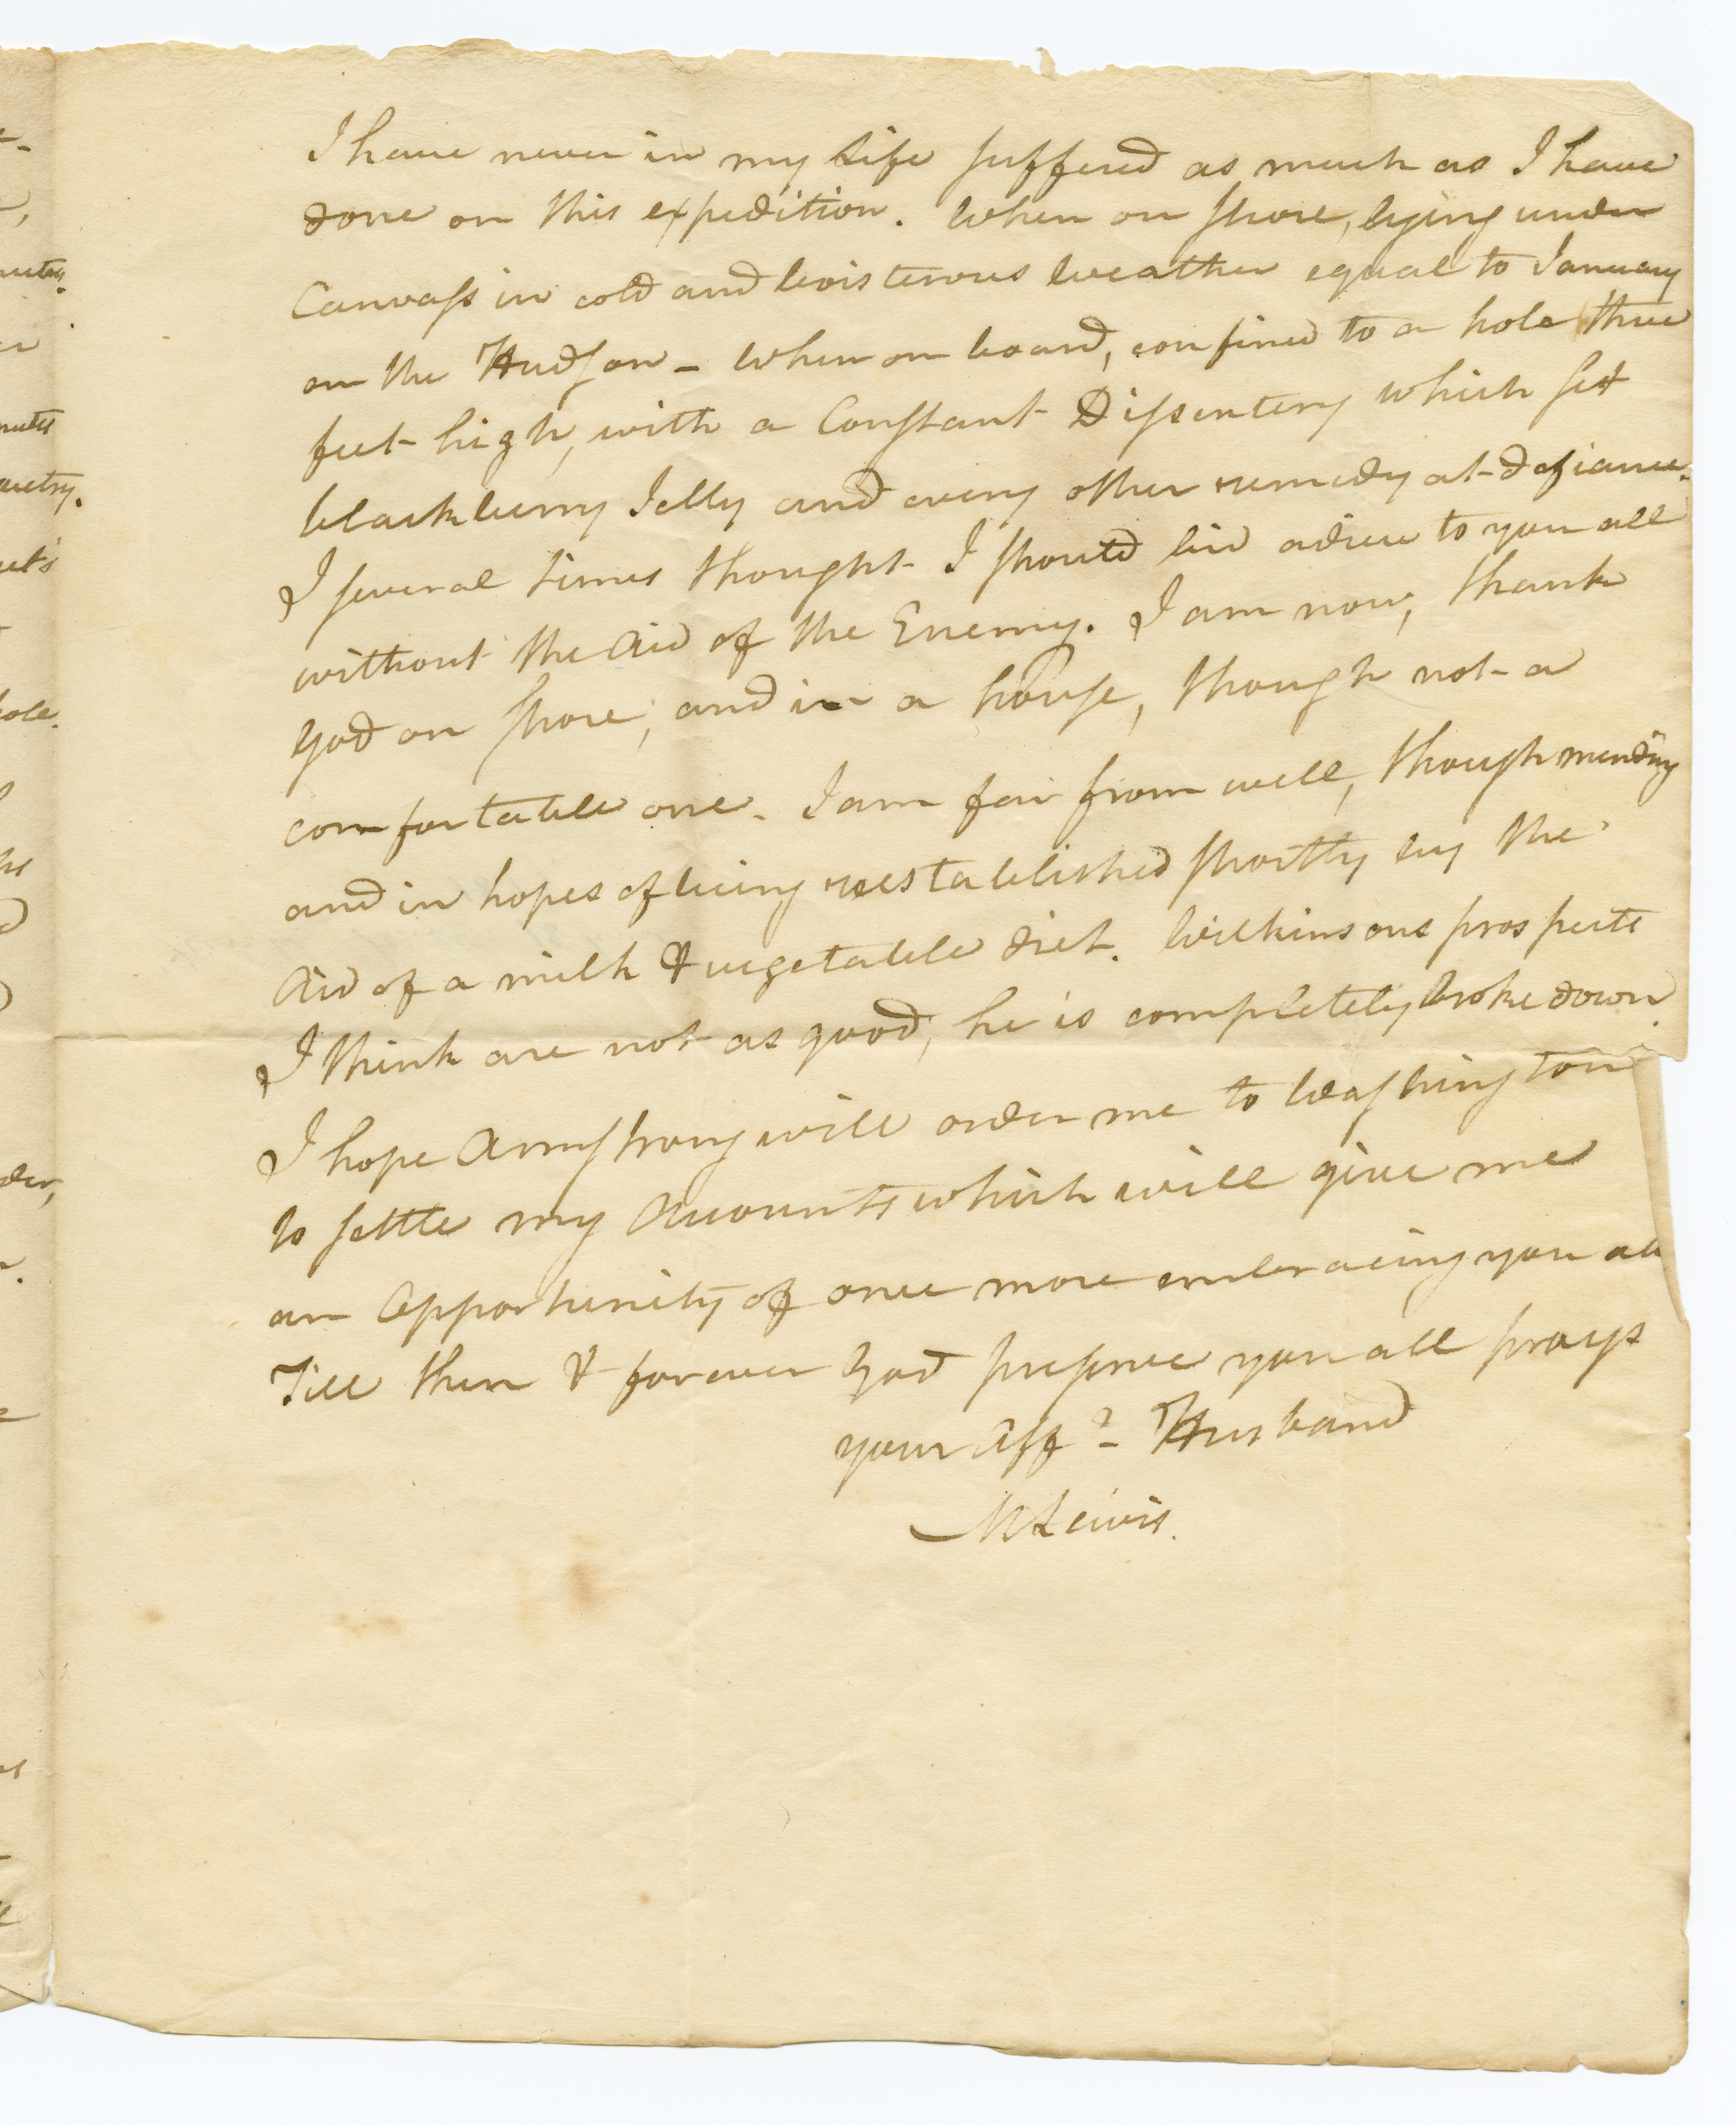 I have never in my Life suffered as much as I have
done on this expedition. When on shore, lying under
Canvass in cold and boisterous weather equal to January
on the Hudson - When on board, confined to a hole three
feet high, with a Constant Dissentery which set
blackberry Jelly and every other remedy at defiance.
I several times thought I should bid adieu to you all
without the Aid of the Enemy. I am now, thank
God on shore, and in a house, though not a
comfortable one. I am far from well, though mending
and in hopes of being reestablished shortly by the
Aid of a milk & vegetable diet. Wilkinsons prospects
I think are not as good, he is completely broke down.
I hope Armstrong will order me to Washington
to settle my Accounts which will give me
an Opportunity of once more embracing you all
Till then & forever God preserve you all prays
your Aff.e Husband
M Lewis.